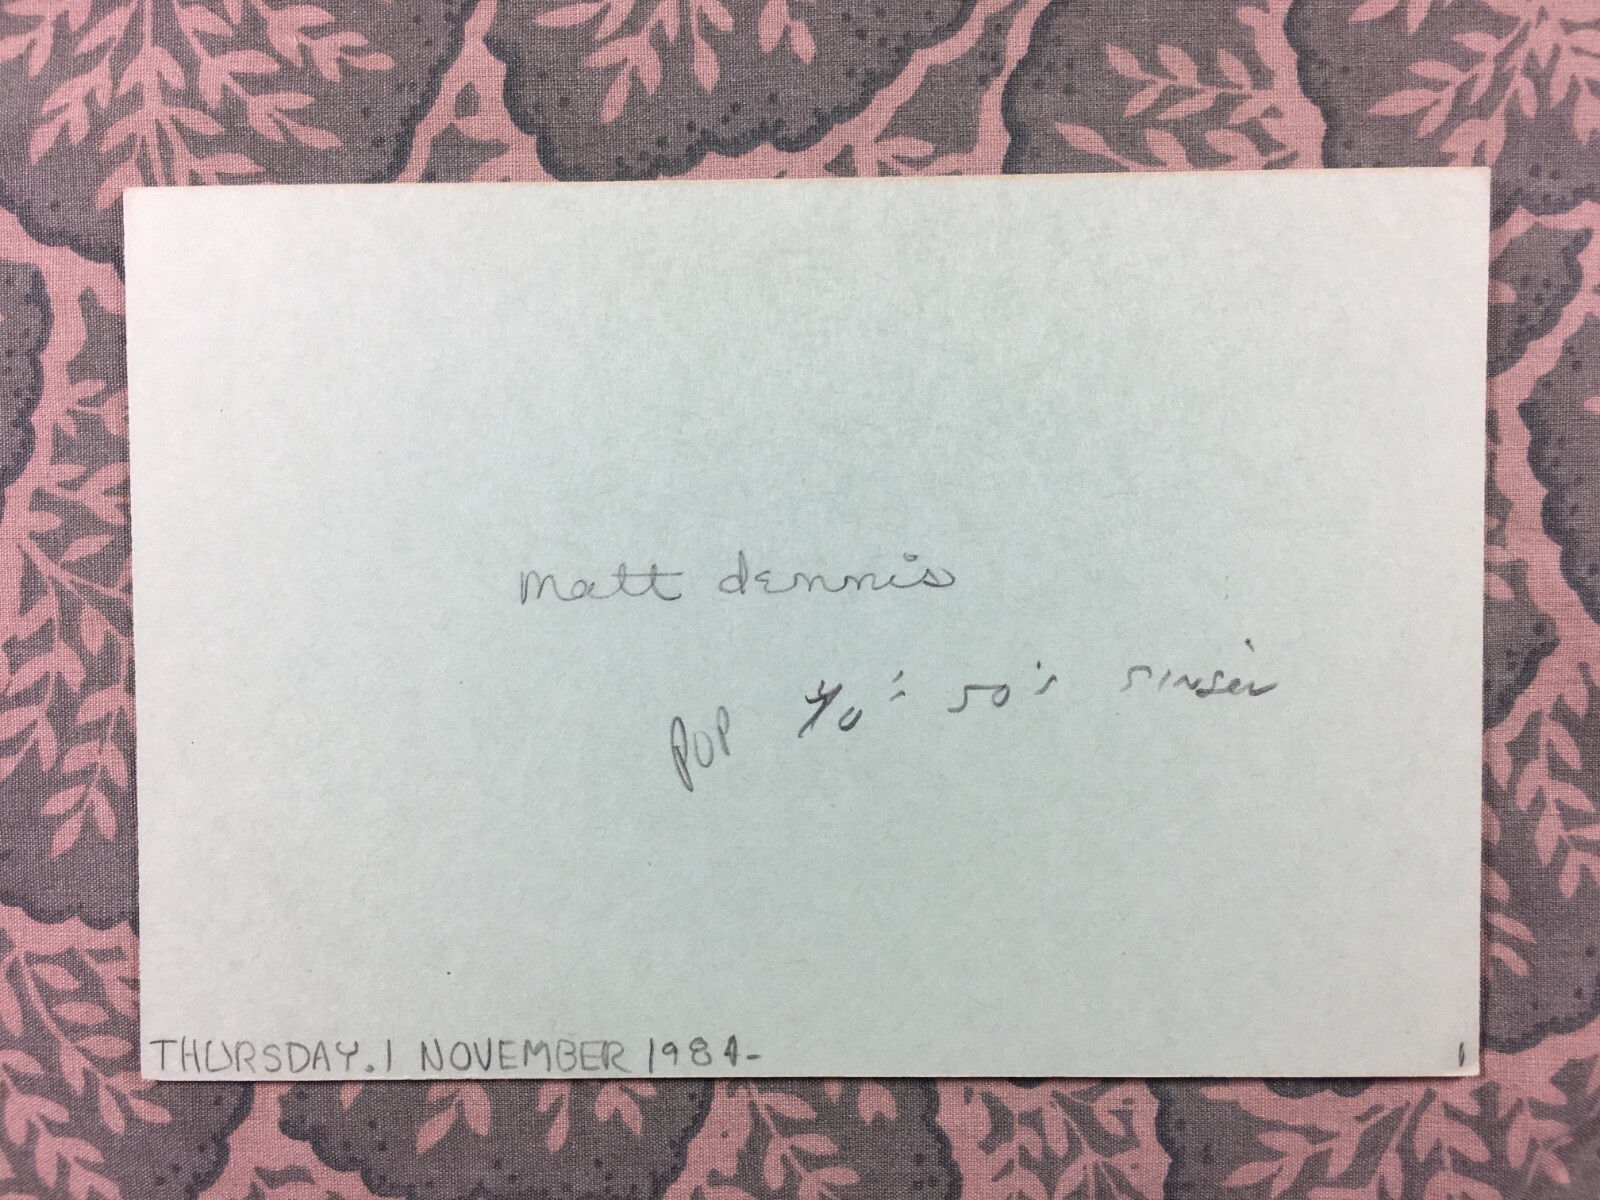 Matt dennis
POP 40's 50's singer
THURSDAY. 1 NOVEMBER 1984- 1